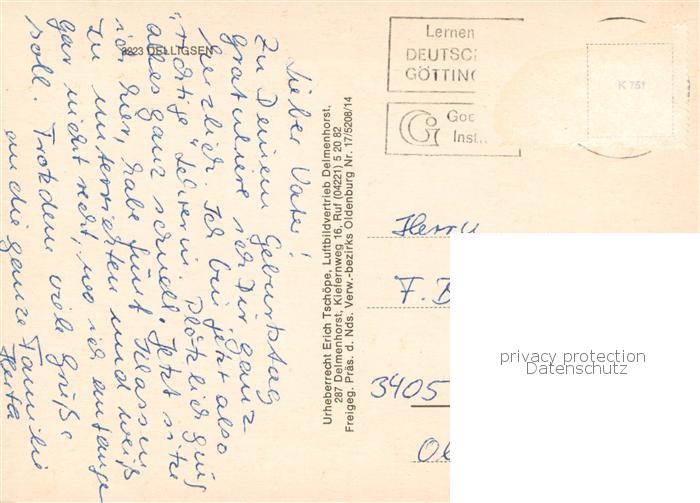 3223 DELLIGSEN
Lieber Vater!
Zu Deinem Geburtstag
gratuliere ich Dir ganz
herzlich. Ich bin jetzt also
"richtige" Lehrerin. Plötzlich ging
alles ganz schnell. Jetzt sitze
ich hier, habe fünf Klassen
zu unterrichten und weiß
gar nicht recht, wo ich anfangen
soll. Trotzdem viele Grüße
an die ganze Familie
Herta
Urheberrecht Erich Tschöpe, Luftbildvertrieb Delmenhorst,
287 Delmenhorst, Kiefernweg 16, Ruf (04221) 5 20 82
Freigeg. Präs. d. Nds. Verw.-bezirks Oldenburg Nr. 17/5208/14
Lernen
DEUTSC
GÖTTING
G
Goe
Inst
K 751
Herrn
F. B
3405
privacy protection
Datenschutz